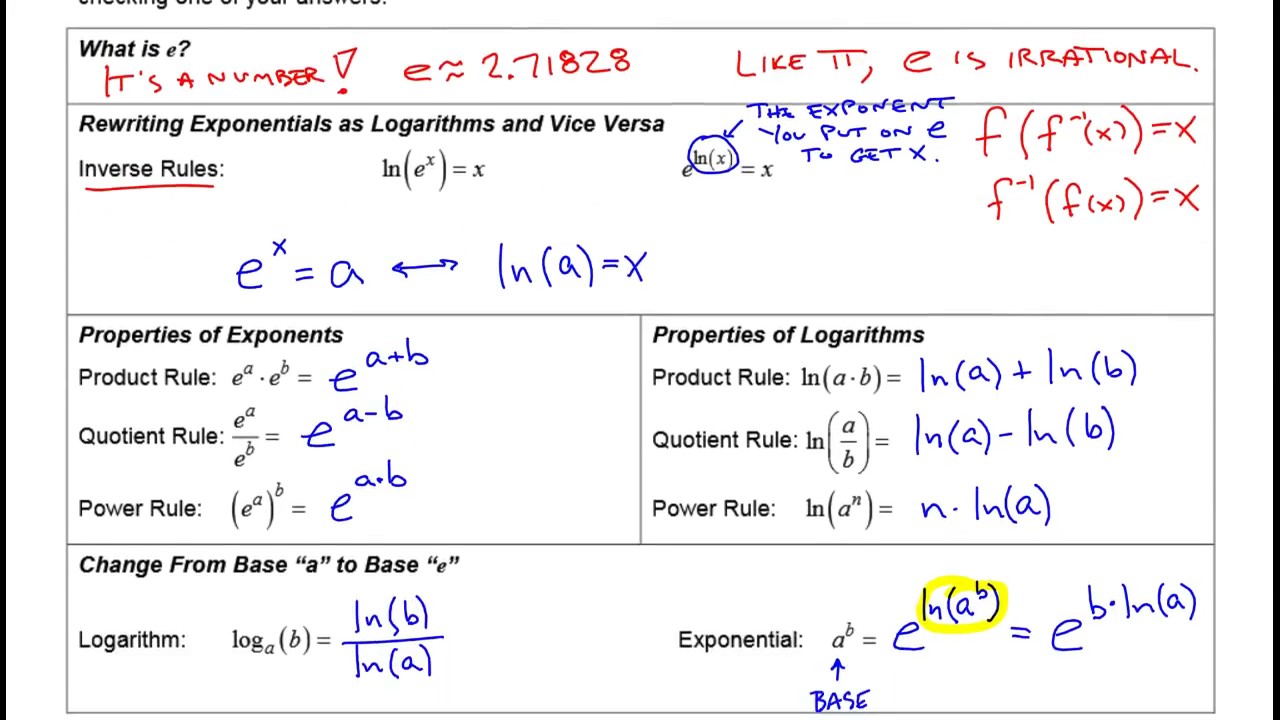 checking one of your answers.
What is e?
IT'S A NUMBER! e ≈ 2.71828 LIKE π, e IS IRRATIONAL.
Rewriting Exponentials as Logarithms and Vice Versa
THE EXPONENT
YOU PUT ON e
TO GET X.
f(f⁻¹(x)) = x
Inverse Rules: ln(e^x) = x e^ln(x) = x
f⁻¹(f(x)) = x
e^x = a ↔ ln(a) = x
Properties of Exponents
Product Rule: e^a · e^b = e^(a+b)
Quotient Rule: e^a/e^b = e^(a-b)
Power Rule: (e^a)^b = e^(a·b)
Properties of Logarithms
Product Rule: ln(a·b) = ln(a) + ln(b)
Quotient Rule: ln(a/b) = ln(a) - ln(b)
Power Rule: ln(a^n) = n · ln(a)
Change From Base “a” to Base “e”
Logarithm: log_a(b) = ln(b)/ln(a)
Exponential: a^b = e^ln(a^b) = e^(b·ln(a))
BASE